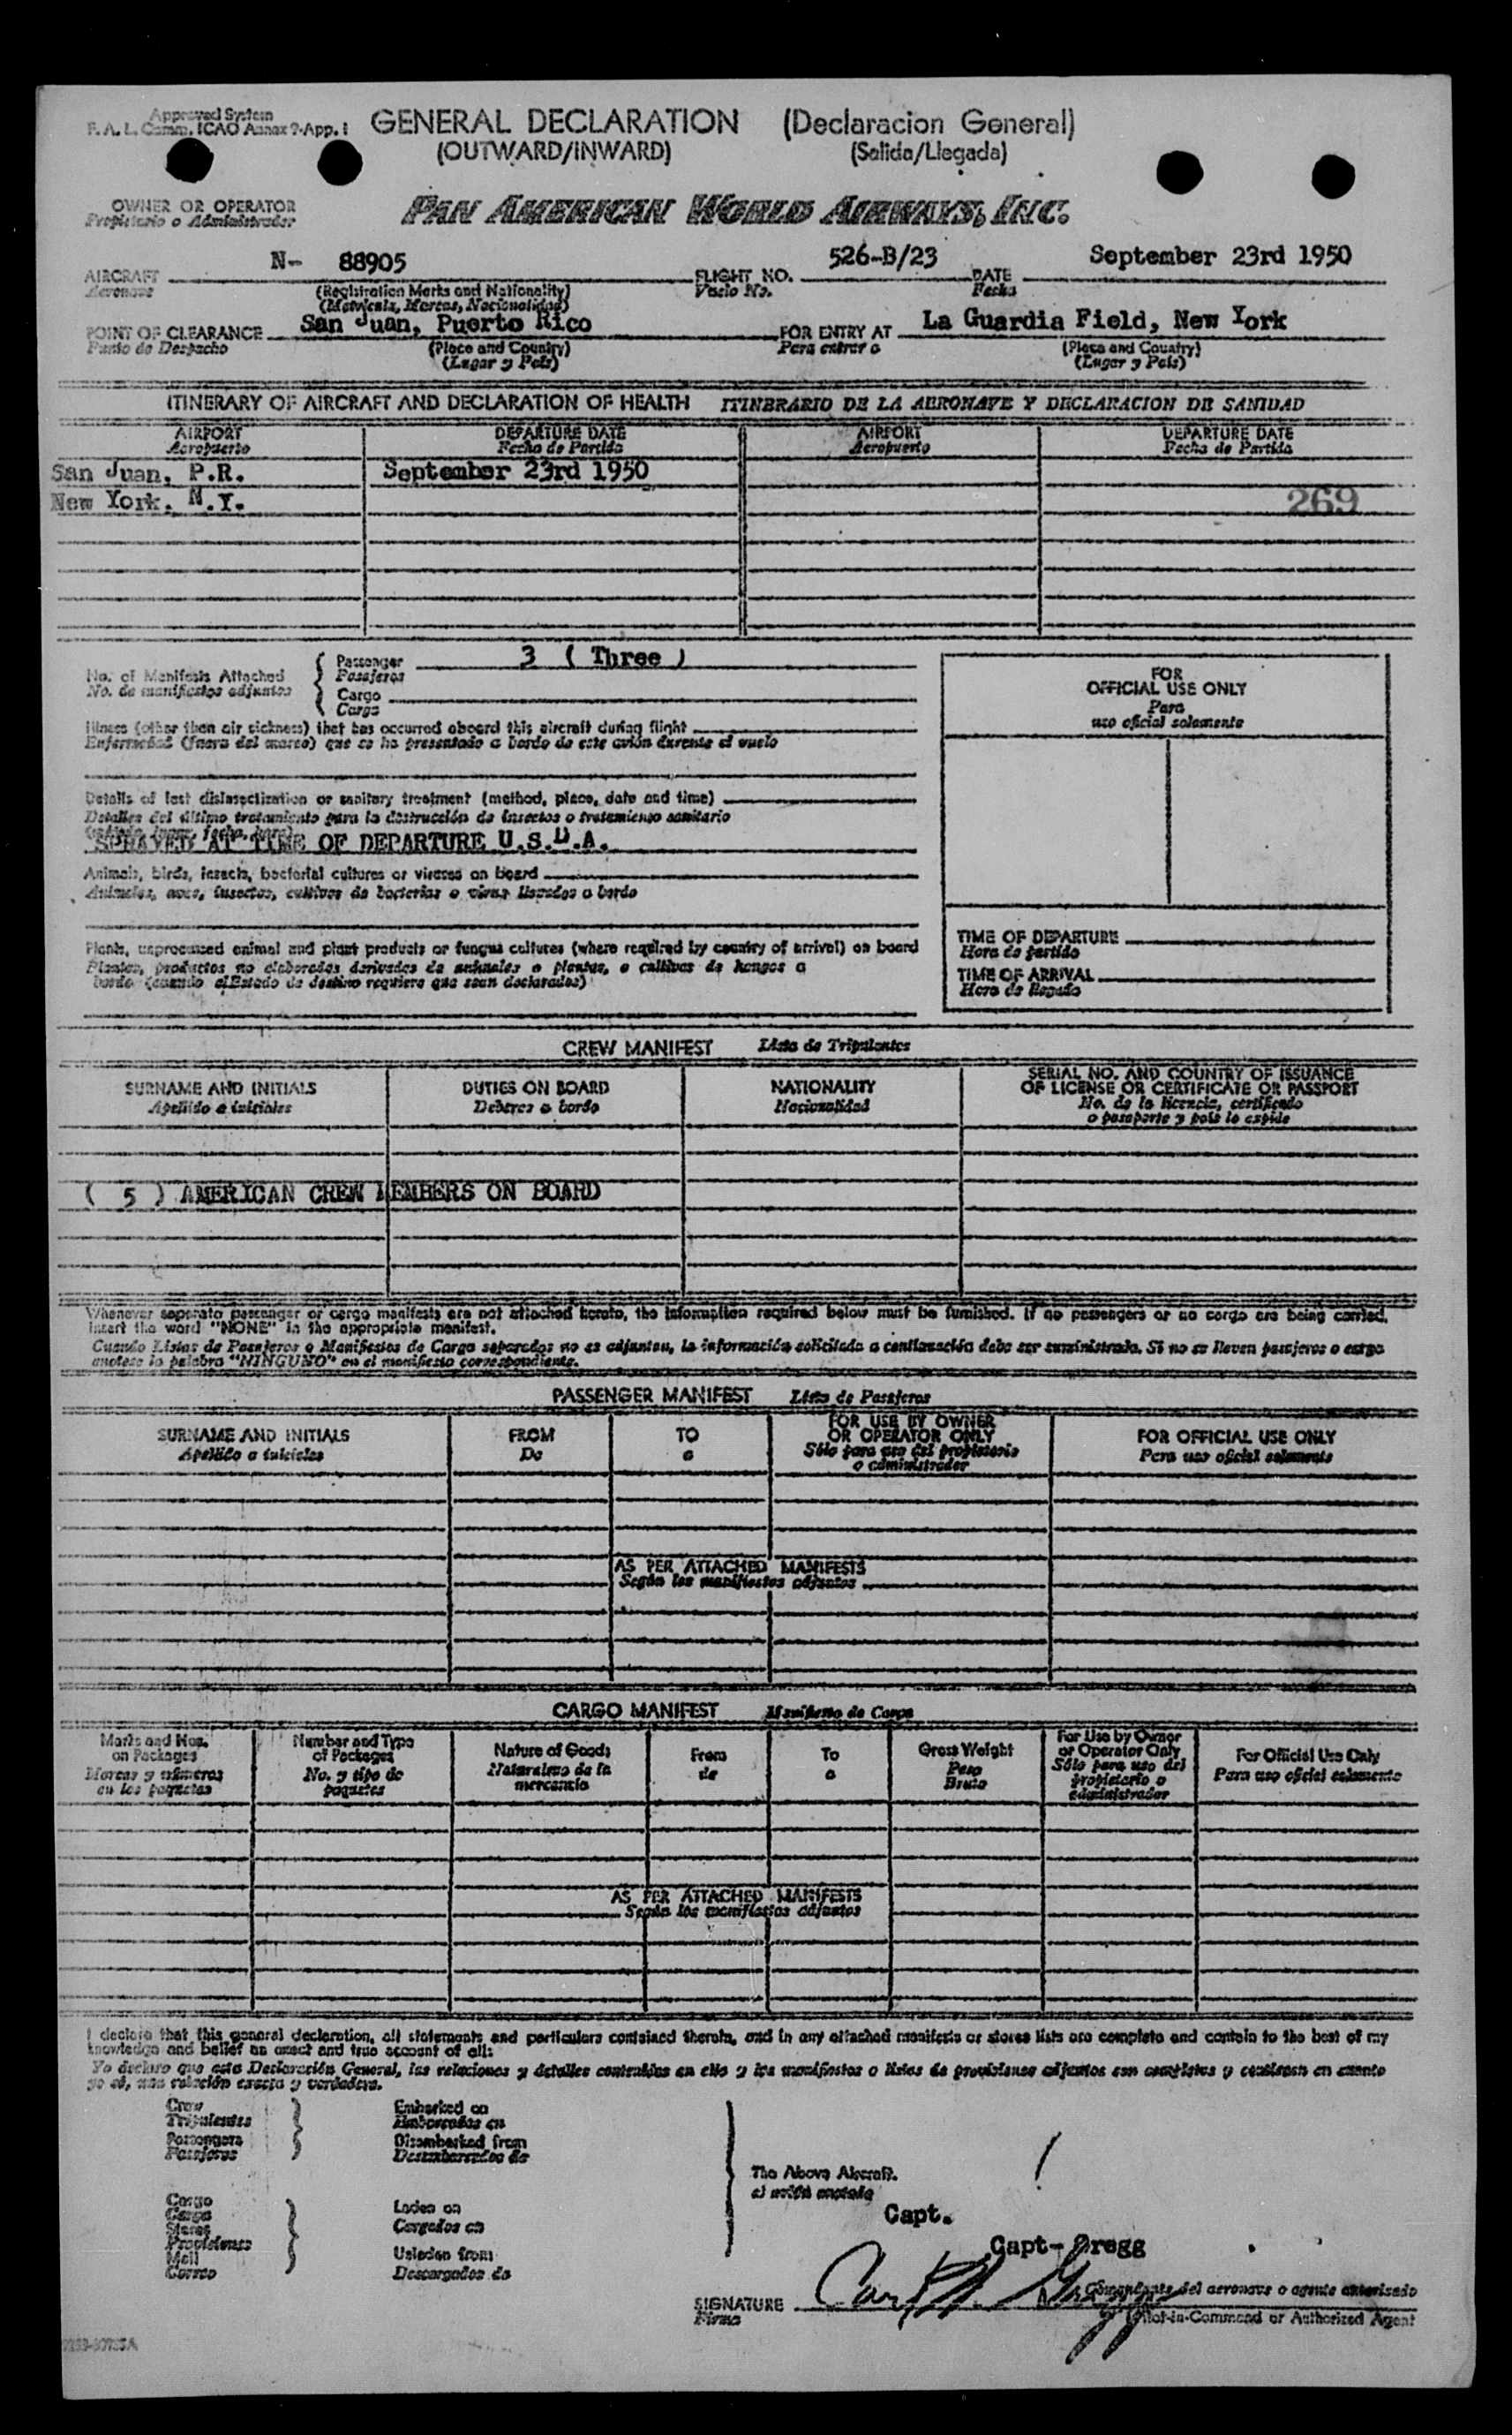 Approved System
F. A. L. Comm. ICAO Annex 9-App. 1
GENERAL DECLARATION (Declaracion General)
(OUTWARD/INWARD) (Salida/Llegada)
OWNER OR OPERATOR
Propietario o Administrador
PAN AMERICAN WORLD AIRWAYS, INC.
AIRCRAFT N- 88905 FLIGHT NO. 526-B/23 DATE September 23rd 1950
Aeronave (Registration Marks and Nationality) Vuelo No. Fecha
(Matricula, Marcas, Nacionalidad)
POINT OF CLEARANCE San Juan, Puerto Rico FOR ENTRY AT La Guardia Field, New York
Punto de Despacho (Place and Country) Para entrar a (Place and Country)
(Lugar y Pais) (Lugar y Pais)
ITINERARY OF AIRCRAFT AND DECLARATION OF HEALTH ITINERARIO DE LA AERONAVE Y DECLARACION DE SANIDAD
AIRPORT DEPARTURE DATE AIRPORT DEPARTURE DATE
Aeropuerto Fecha de Partida Aeropuerto Fecha de Partida
San Juan, P.R. September 23rd 1950
New York, N.Y. 269
No. of Manifests Attached
No. de manifiestos adjuntos
Passenger 3 ( Three )
Pasajeros
Cargo
Carga
Illness (other than air sickness) that has occurred aboard this aircraft during flight
Enfermedad (fuera del mareo) que se ha presentado a bordo de este avión durante el vuelo
Details of last disinsectization or sanitary treatment (method, place, date and time)
Detalles del último tratamiento para la destrucción de insectos o tratamiento sanitario
(método, lugar, fecha, hora)
SPRAYED AT TIME OF DEPARTURE U.S.D.A.
Animals, birds, insects, bacterial cultures or viruses on board
Animales, aves, insectos, cultivos de bacterias o virus llevados a bordo
Plants, unprocessed animal and plant products or fungus cultures (where required by country of arrival) on board
Plantas, productos no elaborados derivados de animales o plantas, o cultivos de hongos a
bordo (cuando el Estado de destino requiere que sean declarados)
FOR
OFFICIAL USE ONLY
Para
uso oficial solamente
TIME OF DEPARTURE
Hora de partida
TIME OF ARRIVAL
Hora de llegada
CREW MANIFEST Lista de Tripulantes
SURNAME AND INITIALS DUTIES ON BOARD NATIONALITY SERIAL NO. AND COUNTRY OF ISSUANCE
Apellido e iniciales Deberes a bordo Nacionalidad OF LICENSE OR CERTIFICATE OR PASSPORT
No. de la licencia, certificado
o pasaporte y pais lo expide
( 5 ) AMERICAN CREW MEMBERS ON BOARD
Whenever separate passenger or cargo manifests are not attached hereto, the information required below must be furnished. If no passengers or no cargo are being carried,
insert the word "NONE" in the appropriate manifest.
Cuando Listas de Pasajeros o Manifiestos de Carga separados no se adjuntan, la información solicitada a continuación debe ser suministrada. Si no se llevan pasajeros o carga
anotese la palabra "NINGUNO" en el manifiesto correspondiente.
PASSENGER MANIFEST Lista de Pasajeros
SURNAME AND INITIALS FROM TO FOR USE BY OWNER FOR OFFICIAL USE ONLY
Apellido e iniciales De a OR OPERATOR ONLY Para uso oficial solamente
Sólo para uso del propietario
o administrador
AS PER ATTACHED MANIFESTS
Según los manifiestos adjuntos
CARGO MANIFEST Manifiesto de Carga
Marks and Nos. on Packages
Marcas y números en los paquetes
Number and Type of Packages
No. y tipo de paquetes
Nature of Goods
Naturaleza de la mercancía
From
de
To
a
Gross Weight
Peso
Bruto
For Use by Owner or Operator Only
Sólo para uso del propietario o administrador
For Official Use Only
Para uso oficial solamente
AS PER ATTACHED MANIFESTS
Según los manifiestos adjuntos
I declare that this general declaration, all statements and particulars contained therein, and in any attached manifests or stores lists are complete and contain to the best of my
knowledge and belief an exact and true account of all:
Yo declaro que esta Declaración General, las relaciones y detalles contenidos en ella y los manifiestos o listas de provisiones adjuntos son completos y contienen en cuanto
yo sé, una relación exacta y verdadera.
Crew Embarked on
Tripulantes Embarcados en
Passengers Disembarked from
Pasajeros Desembarcados de
The Above Aircraft.
el avión anotado
Cargo Laden on
Carga Cargados en
Stores
Provisiones
Mail Unladen from
Correo Descargados de
Capt.
Capt- Gregg
SIGNATURE Comandante del aeronave o agente autorizado
Firma Pilot-in-Command or Authorized Agent